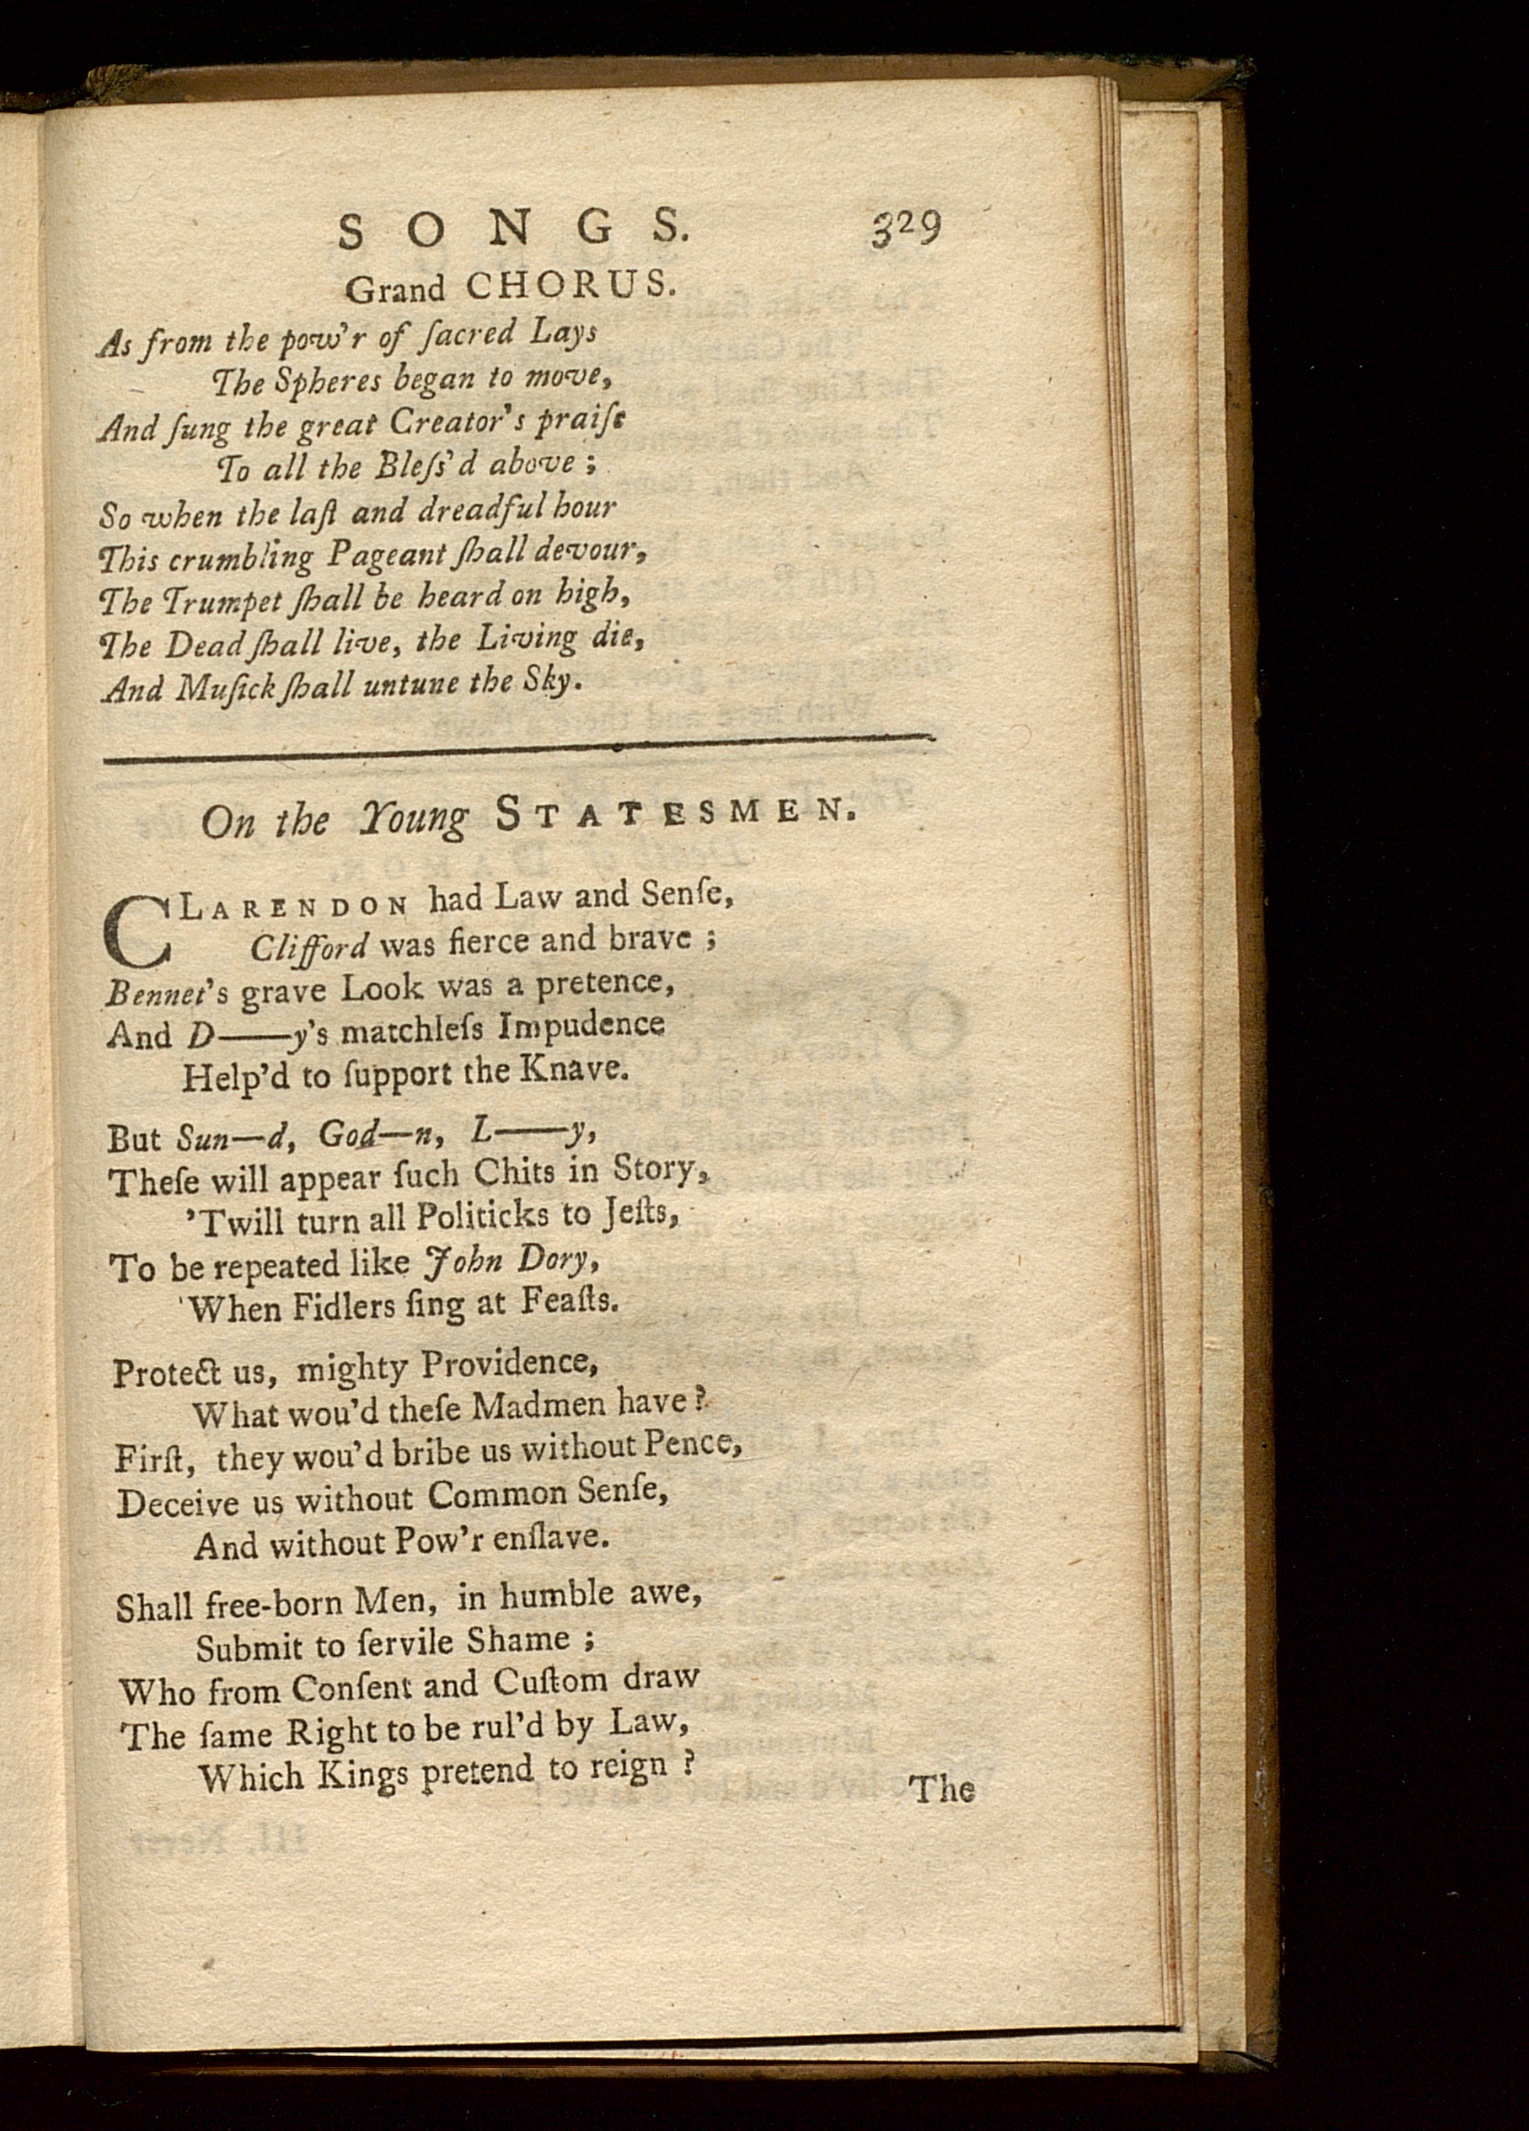 SONGS. 329
Grand CHORUS.
As from the pow'r of ſacred Lays
The Spheres began to move,
And ſung the great Creator's praiſe
To all the Bleſs'd above;
So when the laſt and dreadful hour
This crumbling Pageant ſhall devour,
The Trumpet ſhall be heard on high,
The Dead ſhall live, the Living die,
And Muſick ſhall untune the Sky.
On the Young STATESMEN.
CLARENDON had Law and Senſe,
Clifford was fierce and brave;
Bennet's grave Look was a pretence,
And D——y's matchleſs Impudence
Help'd to ſupport the Knave.
But Sun—d, God—n, L——y,
Theſe will appear ſuch Chits in Story,
'Twill turn all Politicks to Jeſts,
To be repeated like John Dory,
When Fidlers ſing at Feaſts.
Protect us, mighty Providence,
What wou'd theſe Madmen have?
Firſt, they wou'd bribe us without Pence,
Deceive us without Common Senſe,
And without Pow'r enſlave.
Shall free-born Men, in humble awe,
Submit to ſervile Shame;
Who from Conſent and Cuſtom draw
The ſame Right to be rul'd by Law,
Which Kings pretend to reign?
The